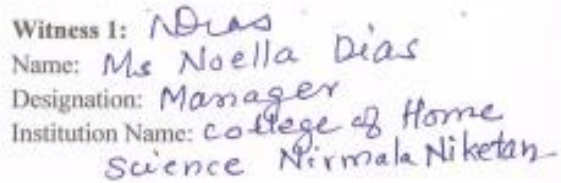 Witness 1: NDias
Name: Ms Noella Dias
Designation: Manager
Institution Name: College of Home
Science Nirmala Niketan